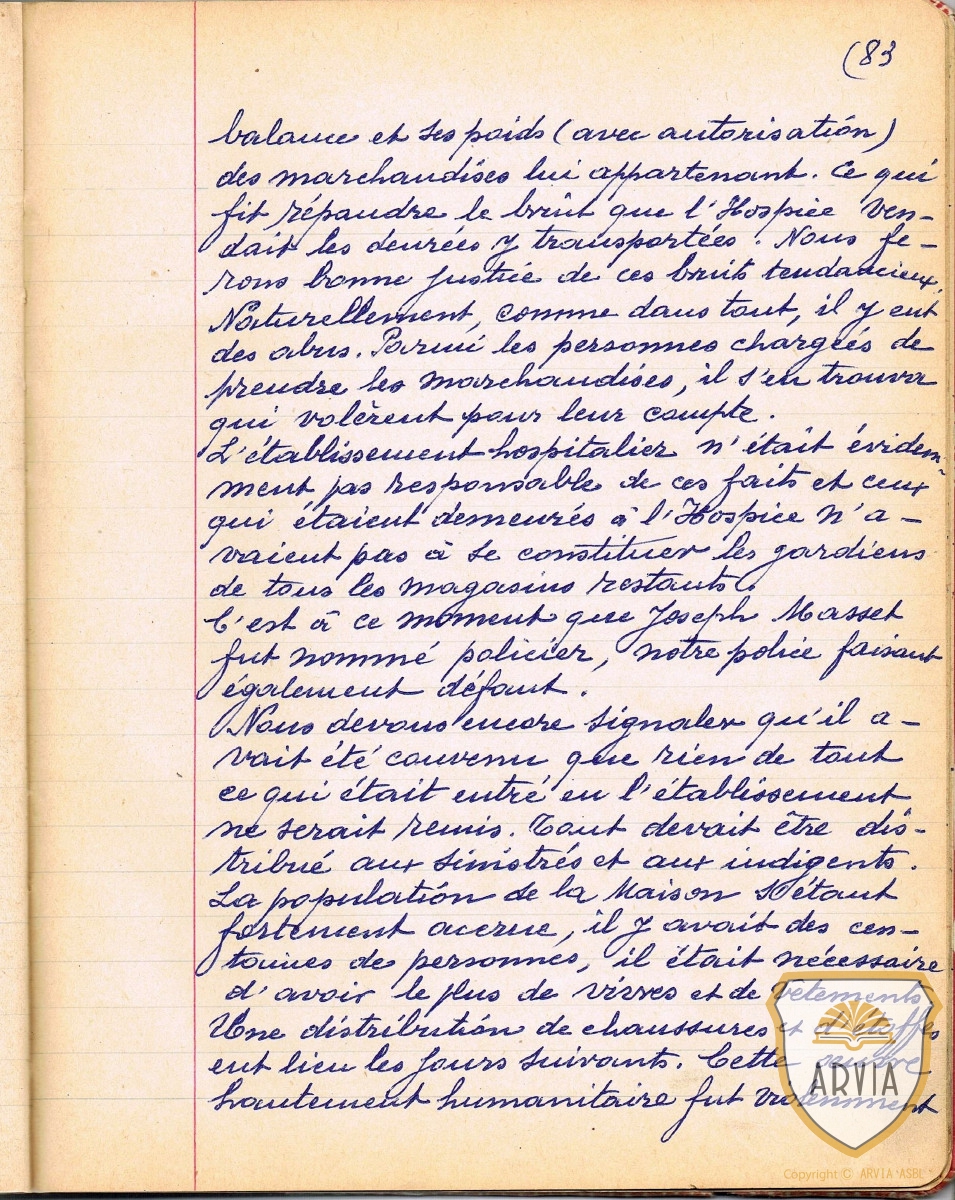 (83
balance et ses poids (avec autorisation)
des marchandises lui appartenant. Ce qui
fit répandre le bruit que l'Hospice ven-
dait les denrées y transportées. Nous fe-
rons bonne justice de ces bruits tendancieux.
Naturellement, comme dans tout, il y eut
des abus. Parmi les personnes chargées de
prendre les marchandises, il s'en trouva
qui volèrent pour leur compte.
L'établissement hospitalier n'était évidem-
ment pas responsable de ces faits et ceux
qui étaient demeurés à l'Hospice n'a-
vaient pas à se constituer les gardiens
de tous les magasins restants.
C'est à ce moment que Joseph Masset
fut nommé policier, notre police faisant
également défaut.
Nous devons encore signaler qu'il a-
vait été convenu que rien de tout
ce qui était entré en l'établissement
ne serait remis. Tout devait être dis-
tribué aux sinistrés et aux indigents.
La population de la Maison s'étant
fortement accrue, il y avait des cen-
taines de personnes, il était nécessaire
d'avoir le plus de vivres et de vêtements
Une distribution de chaussures et d'étoffes
eut lieu les jours suivants. Cette œuvre
hautement humanitaire fut violemment
ARVIA
Copyright © ARVIA ASBL